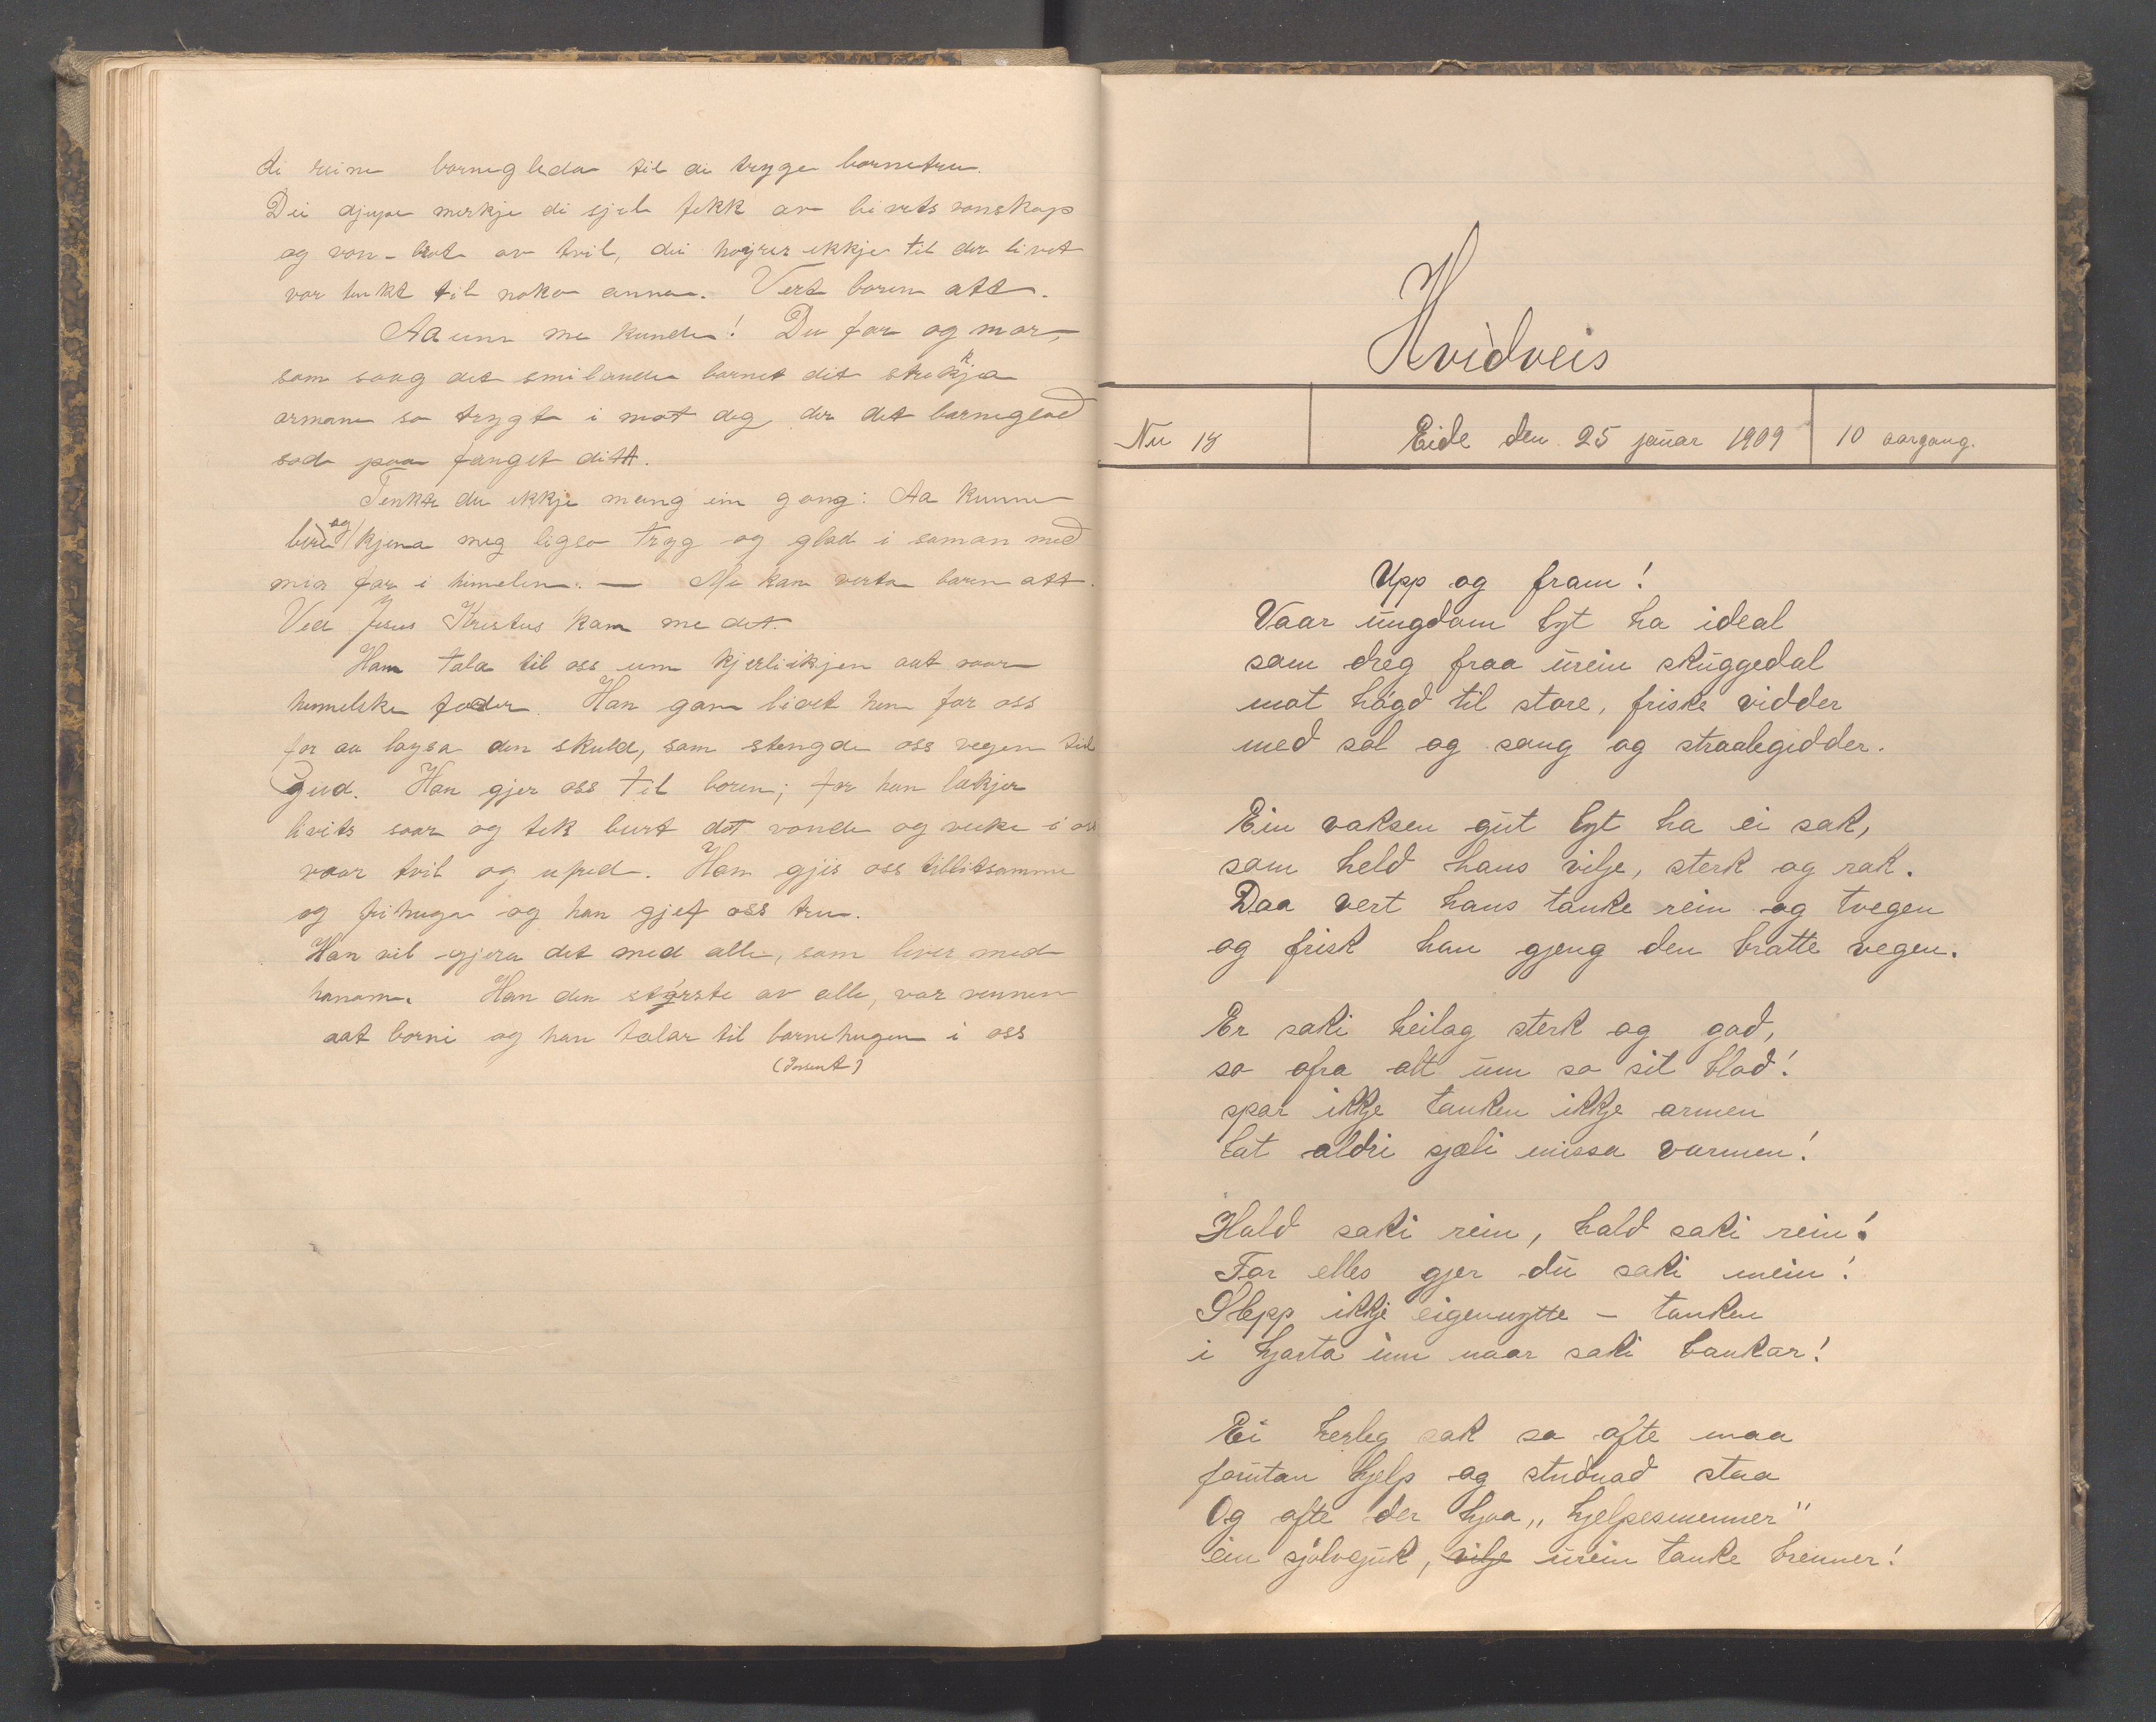 di reine barneglda til di tryge barnetru.
Dei djupe merkje di sjel fekk av livets vonskap
og von-brot av tvil, dei høyrer ikkje til der livet
var tenkt til noko anna. Vert born att.
Aa um me kunde! Du far og mor,
som saag det smilande barnet dit strekkja
armane so trygt i mot deg, der det barneglad
sad paa fanget ditt.
Tenkte du ikkje mang ein gong: Aa kunne
og kjena meg ligso tryg og glad i saman med
min far i himelen. — Me kan verta born att.
Ved Jesus Kristus kan me det.
Han tala til oss um kjerliikjen aat vaar
himmelske fader. Han gav livet hen for oss
for aa løysa den skuld, som stengde oss vegen til
Gud. Han gjer oss til boren; for han lækjer
livits saar og tek burt det vonde og veike i oss
vaar tvil og ufred. Han gjis oss tillitsamme
og frihuga og han gjef oss tru.
Han vil gjera det med alle, som lever med
honom. Han den største av alle, var vennen
aat borni og han talar til barnehugen i oss
(Insent)
Hvidveis
Nu 18 Eide den 25 januar 1909 10 aargang.
Upp og fram!
Vaar ungdom lyt ha ideal
som dreg fraa urein skuggedal
mot høgd til store, friske vidder
med sol og song og straalegidder.
Ein vaksen gut lyt ha ei sak,
som held hans vilje, sterk og rak.
Daa vert hans tanke rein og tvegen
og frisk han gjeng den bratte vegen.
Er saki heilag sterk og god,
so ofra alt um so sit blod!
spar ikkje tanken ikkje armen
lat aldri sjæli missa varmen!
Hald saki rein, hald saki rein!
For elles gjer du saki mein!
Slepp ikkje eigennytte - tanken
i hjarta inn naar saki bankar!
Ei herleg sak so ofte maa
forutan hjelp og studnad staa
Og ofte der hjaa „hjelpesmenner"
ein sjølvgjuk, vilje urein tanke brenner!